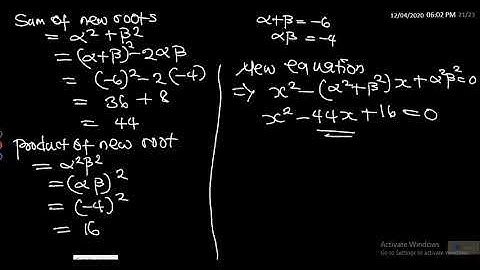 Sum of new roots
= α² + β²
= (α+β)² - 2αβ
= (-6)² - 2(-4)
= 36 + 8
= 44
product of new root
= α²β²
= (αβ)²
= (-4)²
= 16
12/04/2020 06:02 PM 21/21
α+β = -6
αβ = -4
New equation
⇒ x² - (α²+β²)x + α²β² = 0
x² - 44x + 16 = 0
Activate Windows
Go to Settings to activate Windows.